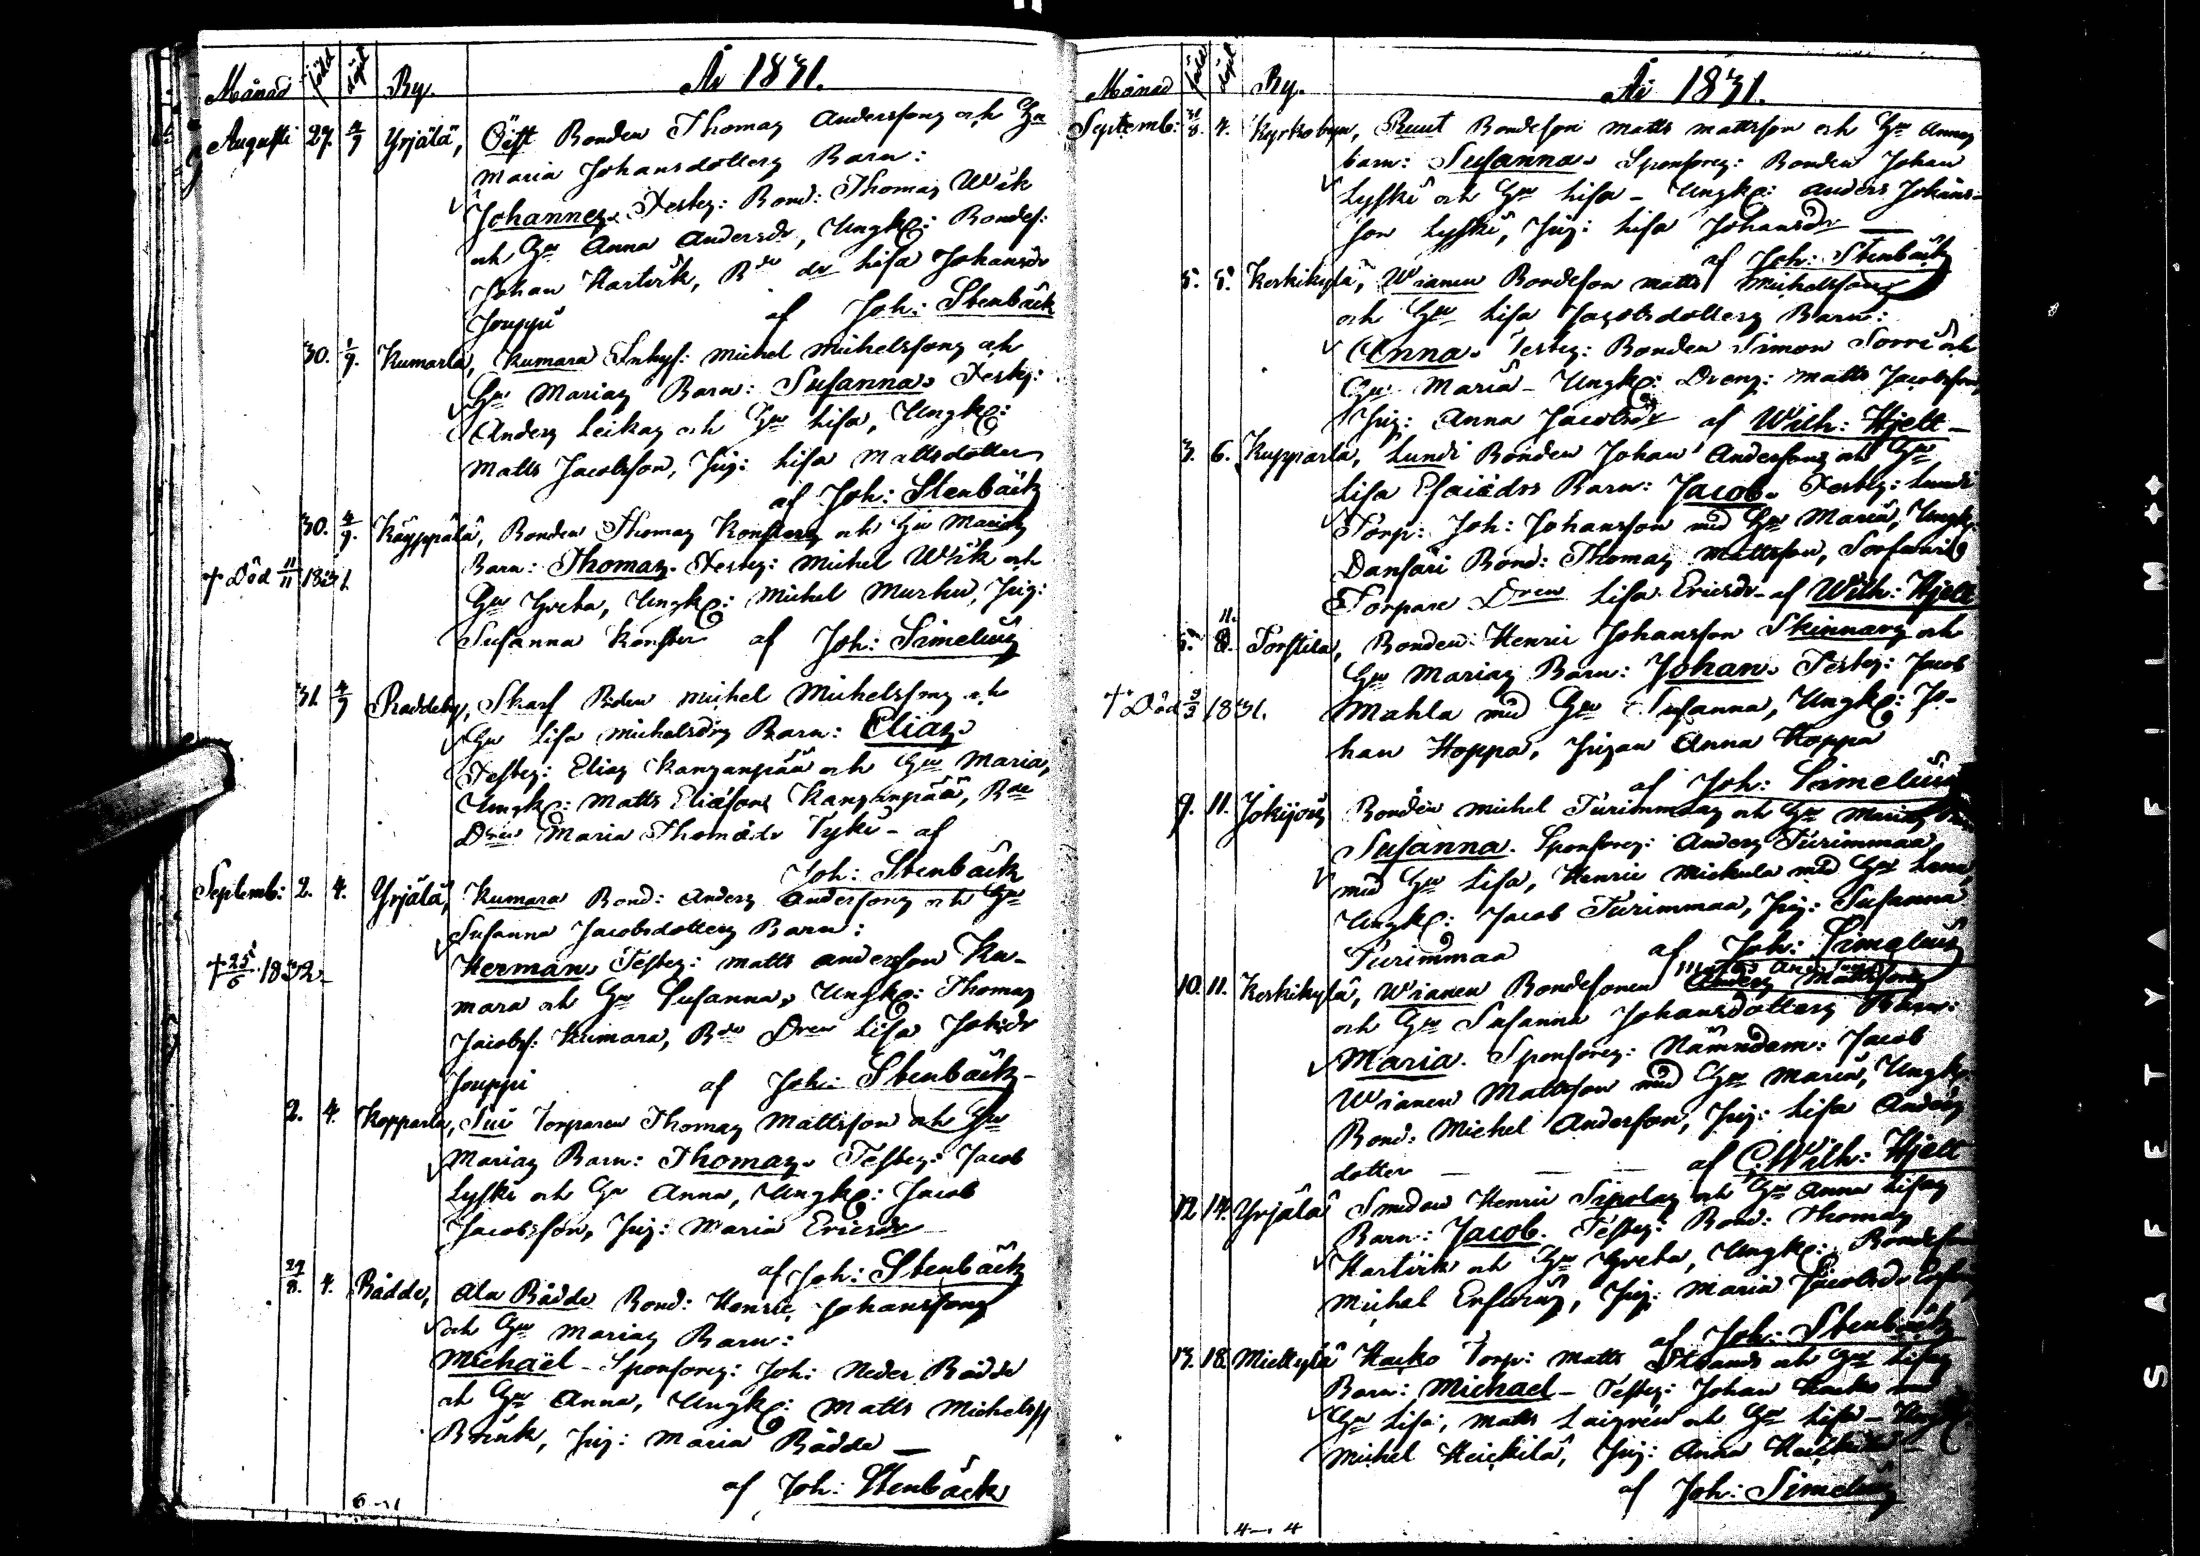 År 1831.
Månad född döpt By.
Augusti 27. 4/9 Yrjälä, Öist Bonden Thomas Anderssons och Hu
Maria Johansdotters Barn:
Johannes. Testes: Bond: Thomas Wäk
och Hu Anna Andersdr, Ungk: Bondes:
Johan Hartvik, Bde dr Lisa Johansdr
Jouppi af Joh: Stenbäck
30. 1/9. Kumarla, Kumara Inhys: Michel Michelssons och
Hu Marias Barn: Susanna. Testes:
Anders Leikas och Hu Lisa, Ungk:
Matts Jacobsson, Pig: Lisa Mattsdotter
af Joh: Stenbäck
30. 4/9. Käyppälä, Bonden Thomas Konsters och Hu Marias
Barn: Thomas. Testes: Michel Wäk och
† Död 11/11 1831.
Hu Greta, Ungk: Michel Murku, Pig:
Susanna Konster af Joh: Simelius
31. 4/9 Raddeby, Skarf Bden Michel Michelssons och
Hu Lisa Michelsdrs Barn: Elias.
Testes: Elias Kanganpää och Hu Maria,
Ungk: Matts Eliæson Kanganpää, Bde
Dren Maria Thomædr Tyki - af
Joh: Stenbäck
Septemb: 2. 4. Yrjälä, Kumara Bond: Anders Anderssons och Hu
Susanna Jacobsdotters Barn:
† 25/6 1832.
Herman. Testes: Matts Andersson Ku-
mara och Hu Susanna, Ungk: Thomas
Jacobs: Kumara, Bde Dren Lisa Johsdr
Jouppi af Joh: Stenbäck
2. 4. Kopparla, Sui Torparen Thomas Mattsson och Hu
Marias Barn: Thomas. Testes: Jacob
Lyski och Hu Anna, Ungk: Jacob
Jacobsson, Pig: Maria Ericsdr
af Joh: Stenbäck
29/8. 4. Rådde, Ala Rådde Bond: Henric Johanssons
och Hu Marias Barn:
Michaël - Sponsores: Joh: Neder Rådde
och Hu Anna, Ungk: Matts Michelss
Brunk, Pig: Maria Rådde
af Joh: Stenbäck
6-1
År 1831.
Månad född döpt By.
Septemb: 31/8. 4. Kyrkobyn, Ruut Bondeson Matts Mattsson och Hu Annas
barn: Susanna. Sponsores: Bonden Johan
Lyski och Hu Lisa - Ungk: Anders Johans-
son Lyski, Pig: Lisa Johansdr
af Joh: Stenbäck
5. 5. Keskikylä, Wianen Bondeson Matts Michelssons
och Hu Lisa Jacobsdotters Barn:
Anna. Testes: Bonden Simon Sorri och
Hu Maria - Ungk: Dreng: Matts Jacobsson,
Pig: Anna Jacobsdr af Wilh: Hjelt -
3. 6. Kupparla, Lundi Bonden Johan Anderssons och Hu
Lisa Esaiædrs Barn: Jacob. Testes: Lundi
Torp: Joh: Johansson med Hu Maria, Ungk:
Dansari Bond: Thomas Mattsson,
Torpare Dren Lisa Ericsdr - af Wilh: Hjelt
5. 11. Torstila, Bonden Henric Johansson Skinnars och
Hu Marias Barn: Johan. Testes: Jacob
† Död 1831.
Mahla med Hu Susanna, Ungk: Jo-
han Hoppa, Pigan Anna Hoppa
af Joh: Simelius
9. 11. Jokijous Bonden Michel Turimmaas och Hu Marias
Susanna. Sponsores: Anders Turimmaa
med Hu Lisa, Henric Mickula med Hu Lena,
Ungk: Jacob Turimmaa, Pig: Susanna
Turimmaa af Joh: Simelius
10. 11. Keskikylä, Wianen Bondesonen Anders Mattssons
och Hu Susanna Johansdotters Barn:
Maria. Sponsores: Nämndem: Jacob
Wianen Mattsson med Hu Maria, Ungk:
Bond: Michel Andersson, Pig: Lisa Anders
dotter - - - af C. Wilh: Hjelt
12 14. Yrjälä Smeden Henric Sipolas och Hu Anna Lisas
Barn: Jacob. Testes: Bond: Thomas
Hartvik och Hu Greta, Ungk: Bondeson
Michel Enfvrus, Pig: Maria Jacobsdr
af Joh: Stenbäck
17. 18. Mickylä Hacko Torp: Matts Strands och Hu Lisas
Barn: Michael - Testes: Johan Hacko med
Hu Lisa, Matts Laigren och Hu Lisa - Ungk:
Michel Heickilä, Pig: Anna Heickilä
af Joh: Simelius
4-4
SAFETY FILM